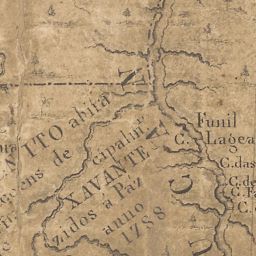 ITO abira
ens de
cipalm.
XAVANTE
zidos a Paz
anno
1788
Funil
C. Lagea
C. das
C. de
C.
C. d